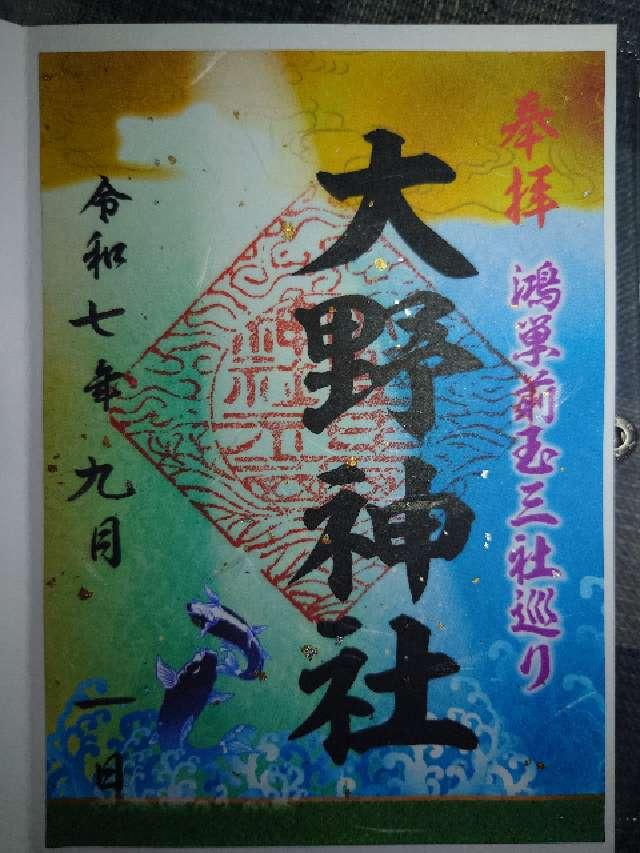 奉拝
鴻巣前玉三社巡り
大野神社
令和七年 九月 一日